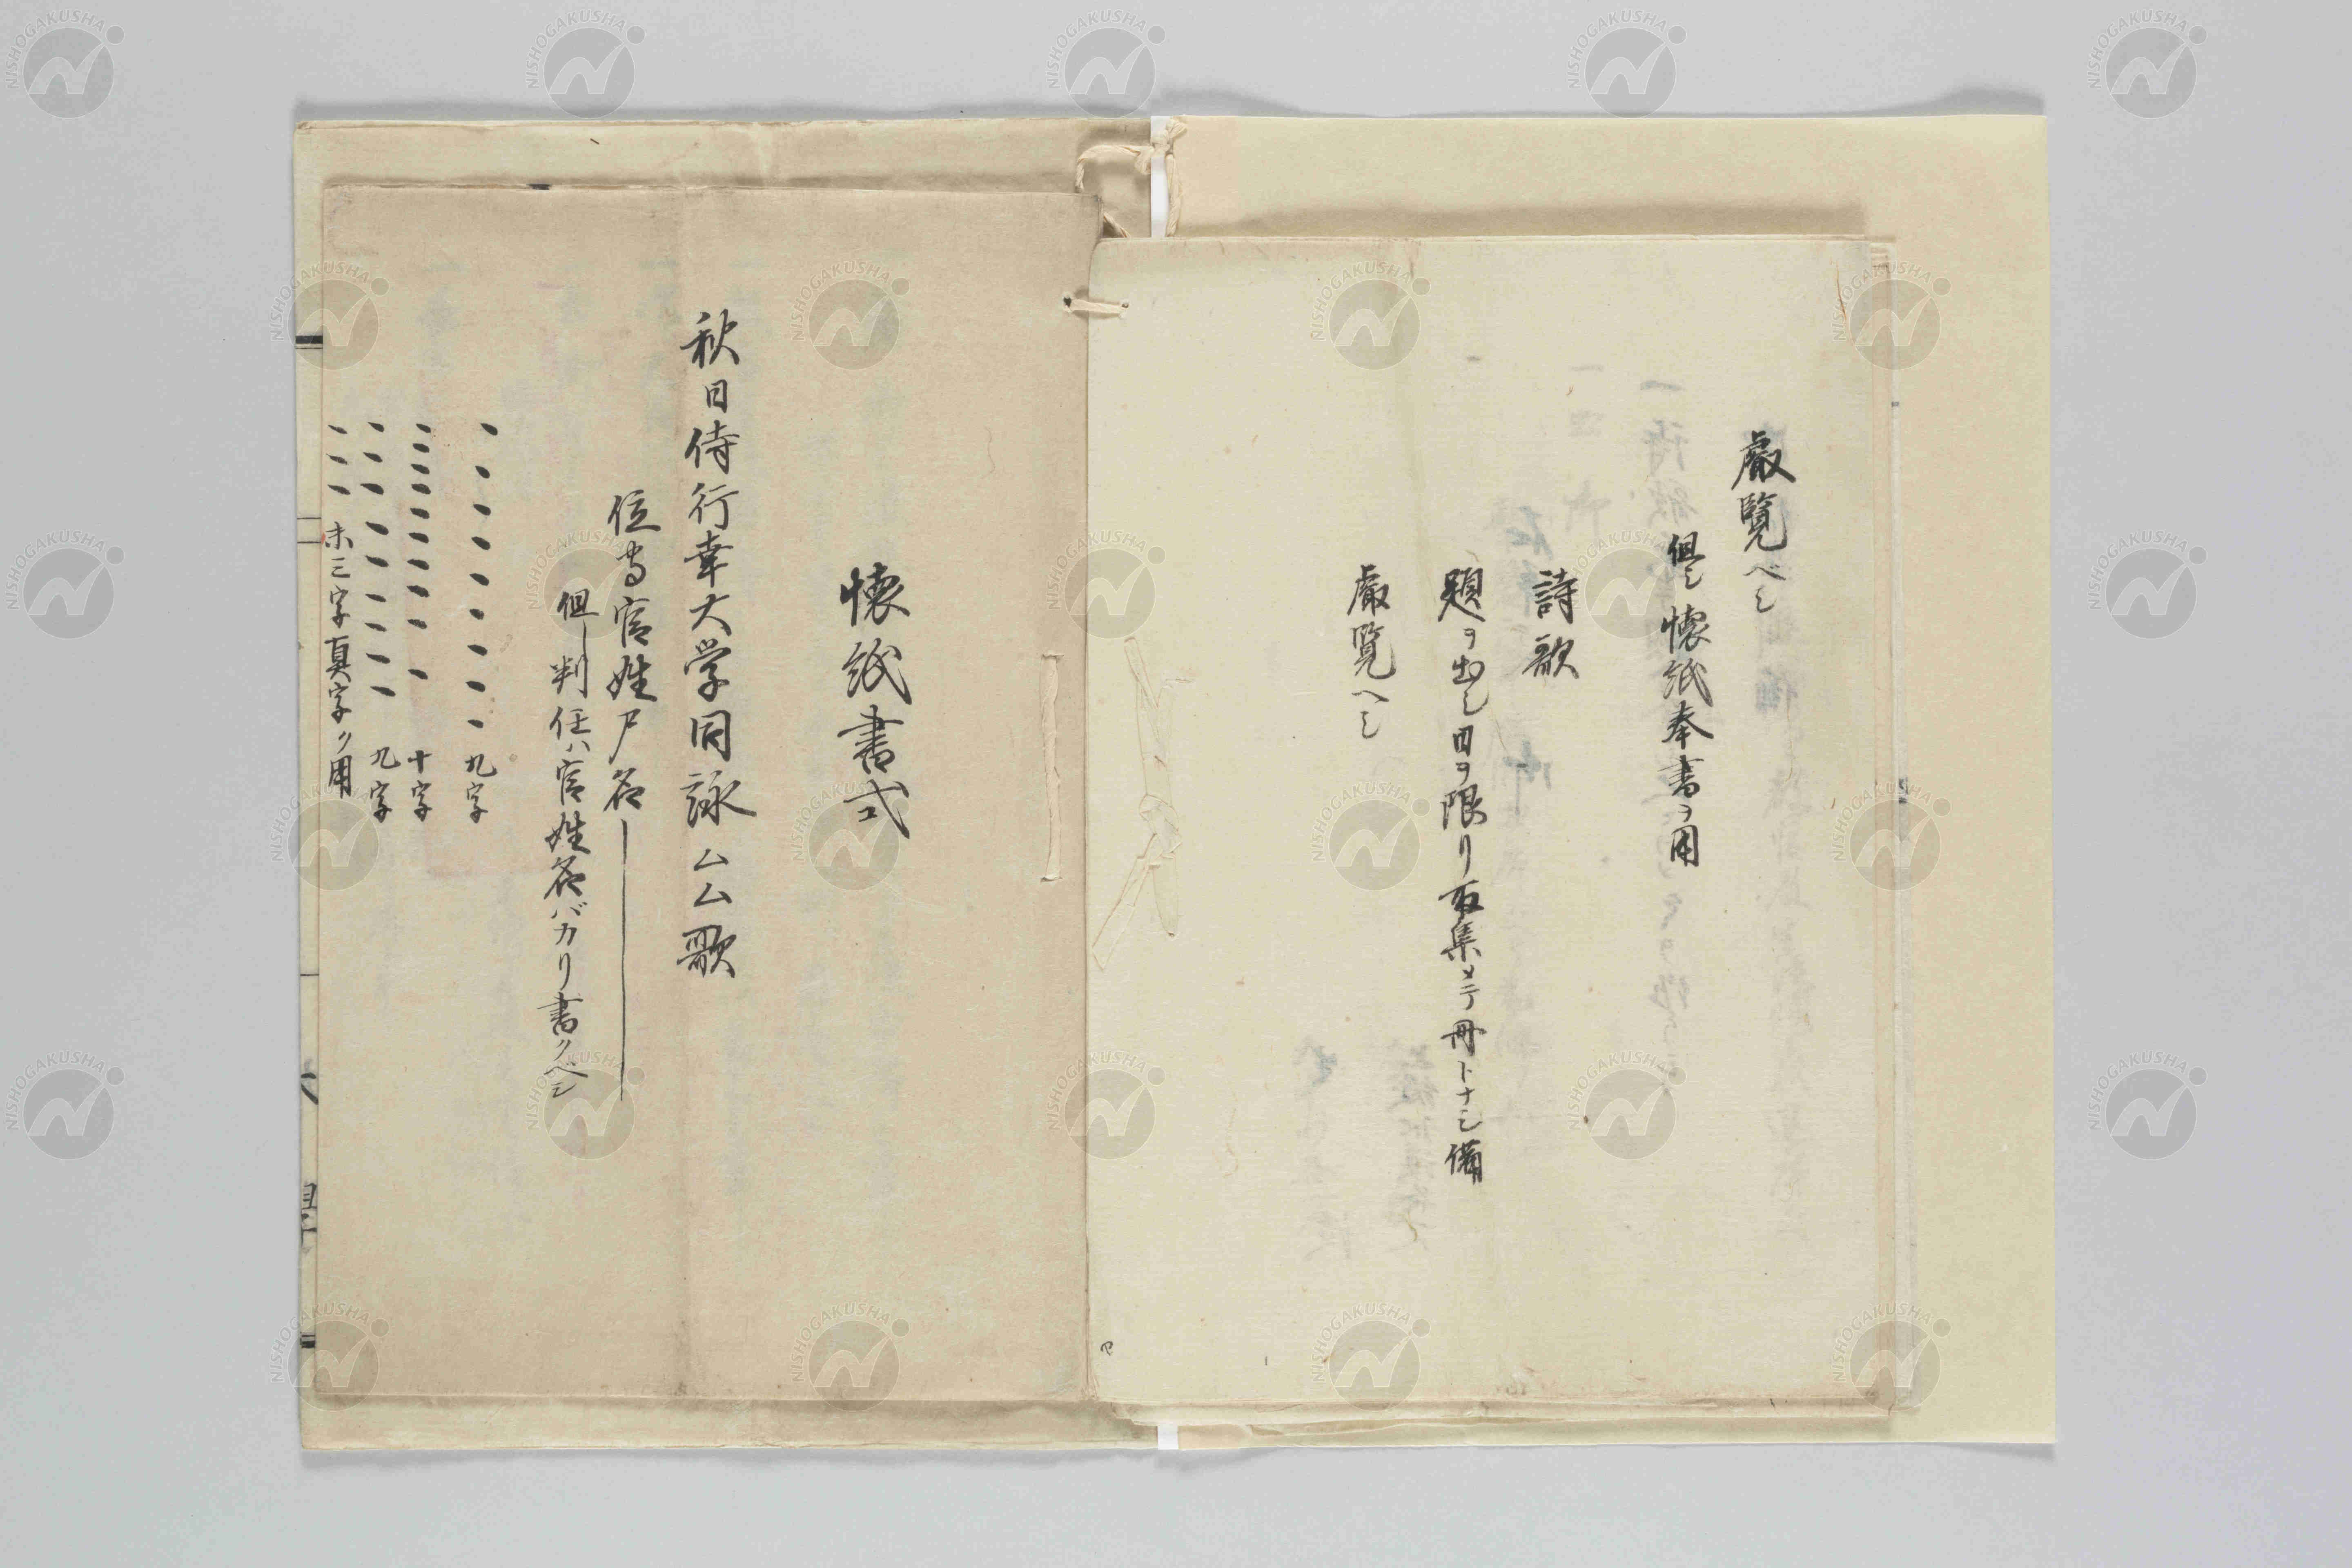 叡覧ベシ
但シ懐紙奉書ヲ用
詩歌
題ヲ出シ日ヲ限リ取集メテ冊トナシ備
叡覧ヘシ
懐紙書式
秋日侍行幸大学同詠ムム歌
位官姓尸名
但判任ハ官姓名バカリ書クベシ
九字
十字
九字
末三字真字ヲ用
NISHOGAKUSHA